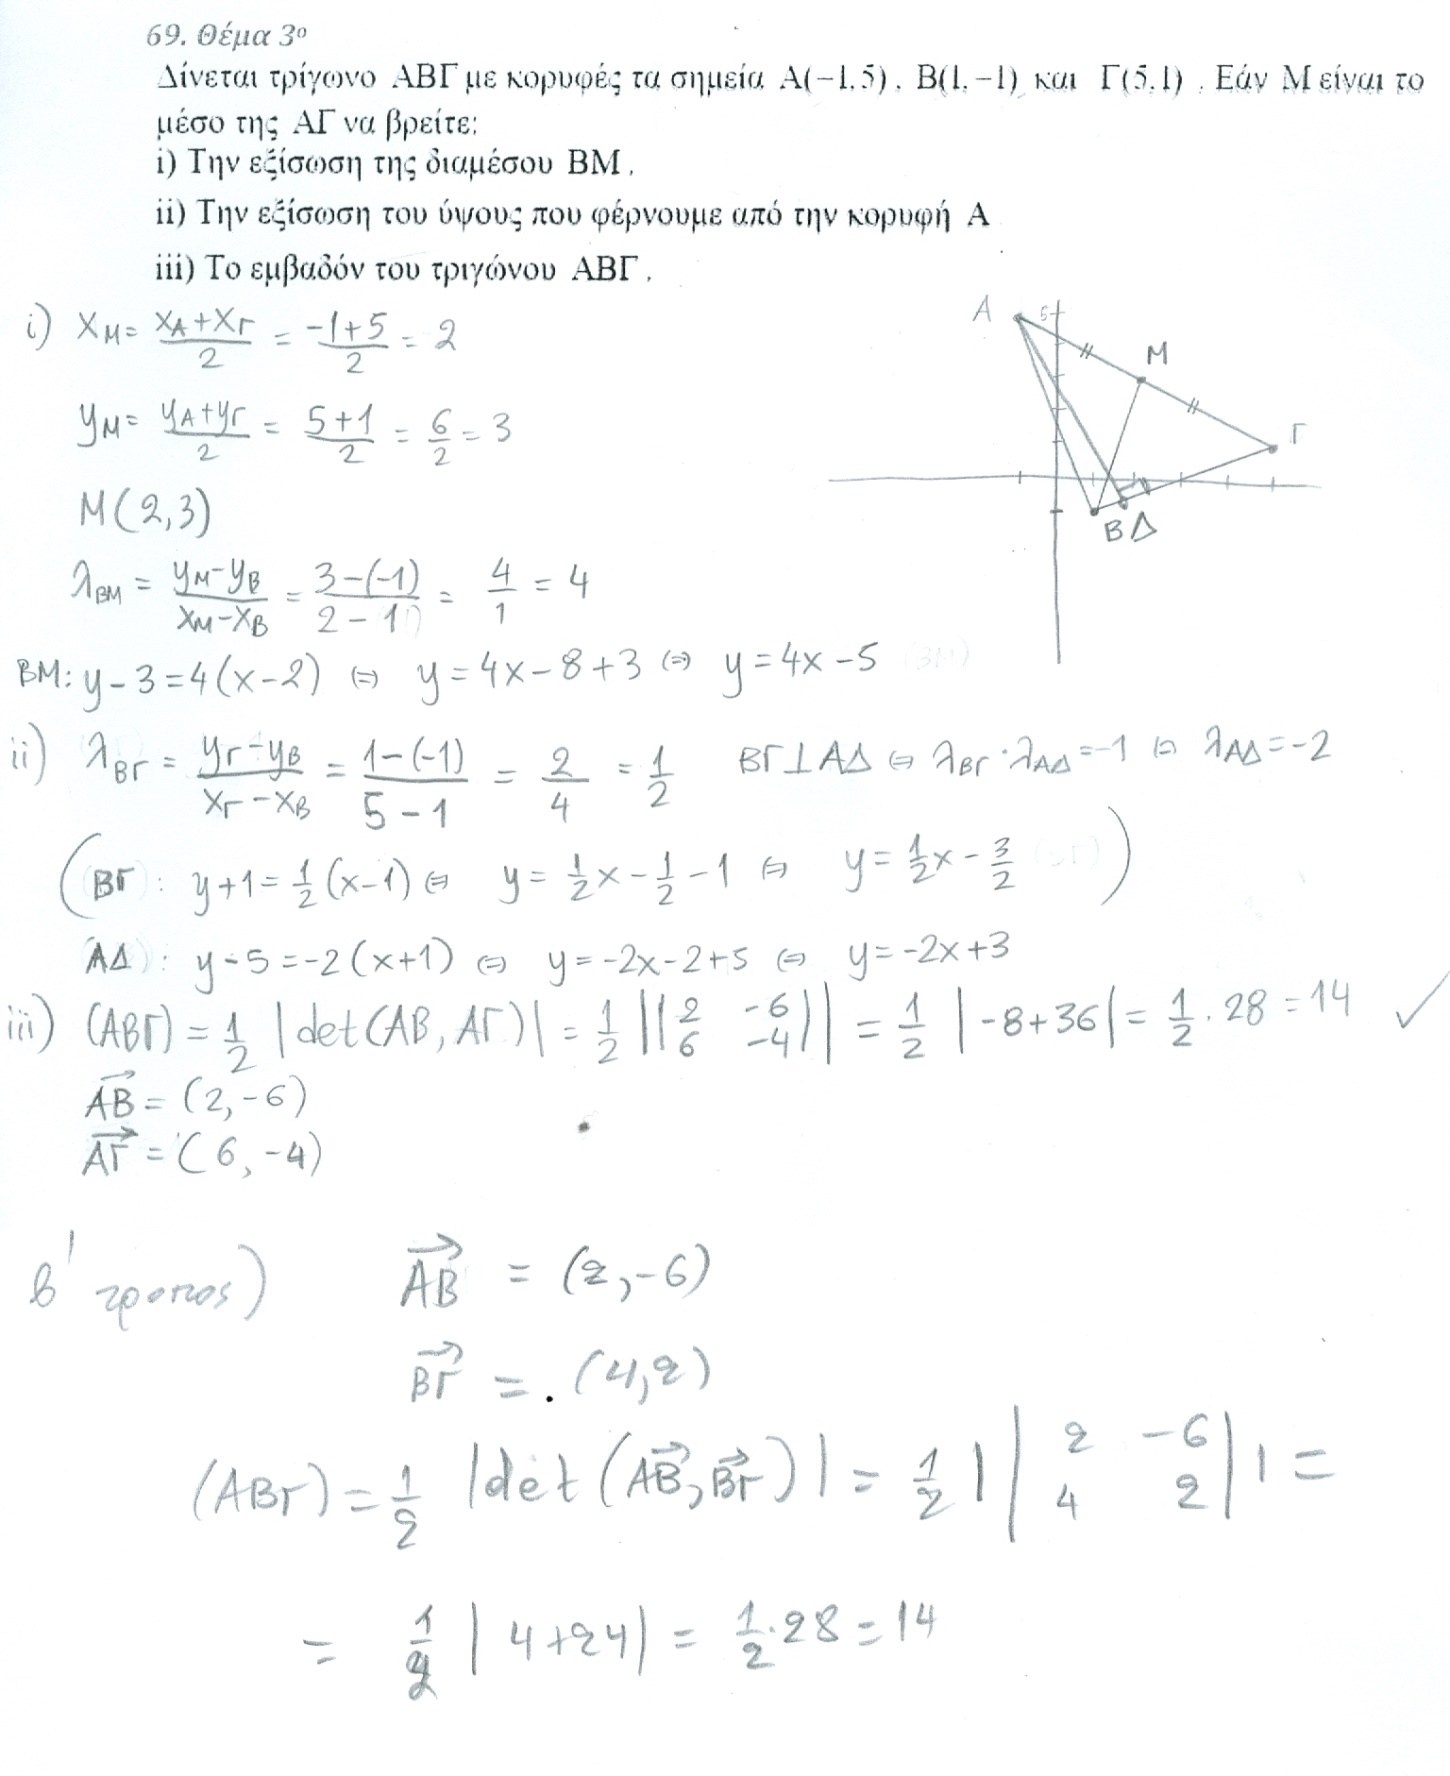 69. Θέμα 3ο
Δίνεται τρίγωνο ΑΒΓ με κορυφές τα σημεία Α(−1,5), Β(1,−1) και Γ(5,1). Εάν Μ είναι το
μέσο της ΑΓ να βρείτε:
i) Την εξίσωση της διαμέσου ΒΜ.
ii) Την εξίσωση του ύψους που φέρνουμε από την κορυφή Α
iii) Το εμβαδόν του τριγώνου ΑΒΓ.
i) x_M = (x_A + x_Γ)/2 = (-1+5)/2 = 2
y_M = (y_A + y_Γ)/2 = (5+1)/2 = 6/2 = 3
M(2,3)
λ_BM = (y_M - y_B)/(x_M - x_B) = (3-(-1))/(2-1) = 4/1 = 4
BM: y-3=4(x-2) ⇔ y=4x-8+3 ⇔ y=4x-5
Α 5 Μ Γ Β Δ
ii) λ_ΒΓ = (y_Γ - y_B)/(x_Γ - x_B) = (1-(-1))/(5-1) = 2/4 = 1/2 ΒΓ⊥ΑΔ ⇔ λ_ΒΓ · λ_ΑΔ = -1 ⇔ λ_ΑΔ = -2
(ΒΓ: y+1 = 1/2 (x-1) ⇔ y = 1/2 x - 1/2 - 1 ⇔ y = 1/2 x - 3/2)
ΑΔ: y-5=-2(x+1) ⇔ y=-2x-2+5 ⇔ y=-2x+3
iii) (ΑΒΓ) = 1/2 |det(ΑΒ, ΑΓ)| = 1/2 ||2 -6 / 6 -4|| = 1/2 |-8+36| = 1/2 · 28 = 14 ✓
ΑΒ = (2,-6)
ΑΓ = (6,-4)
β' τροπος) ΑΒ = (2,-6)
ΒΓ = (4,2)
(ΑΒΓ) = 1/2 |det(ΑΒ, ΒΓ)| = 1/2 ||2 -6 / 4 2|| =
= 1/2 |4+24| = 1/2 · 28 = 14